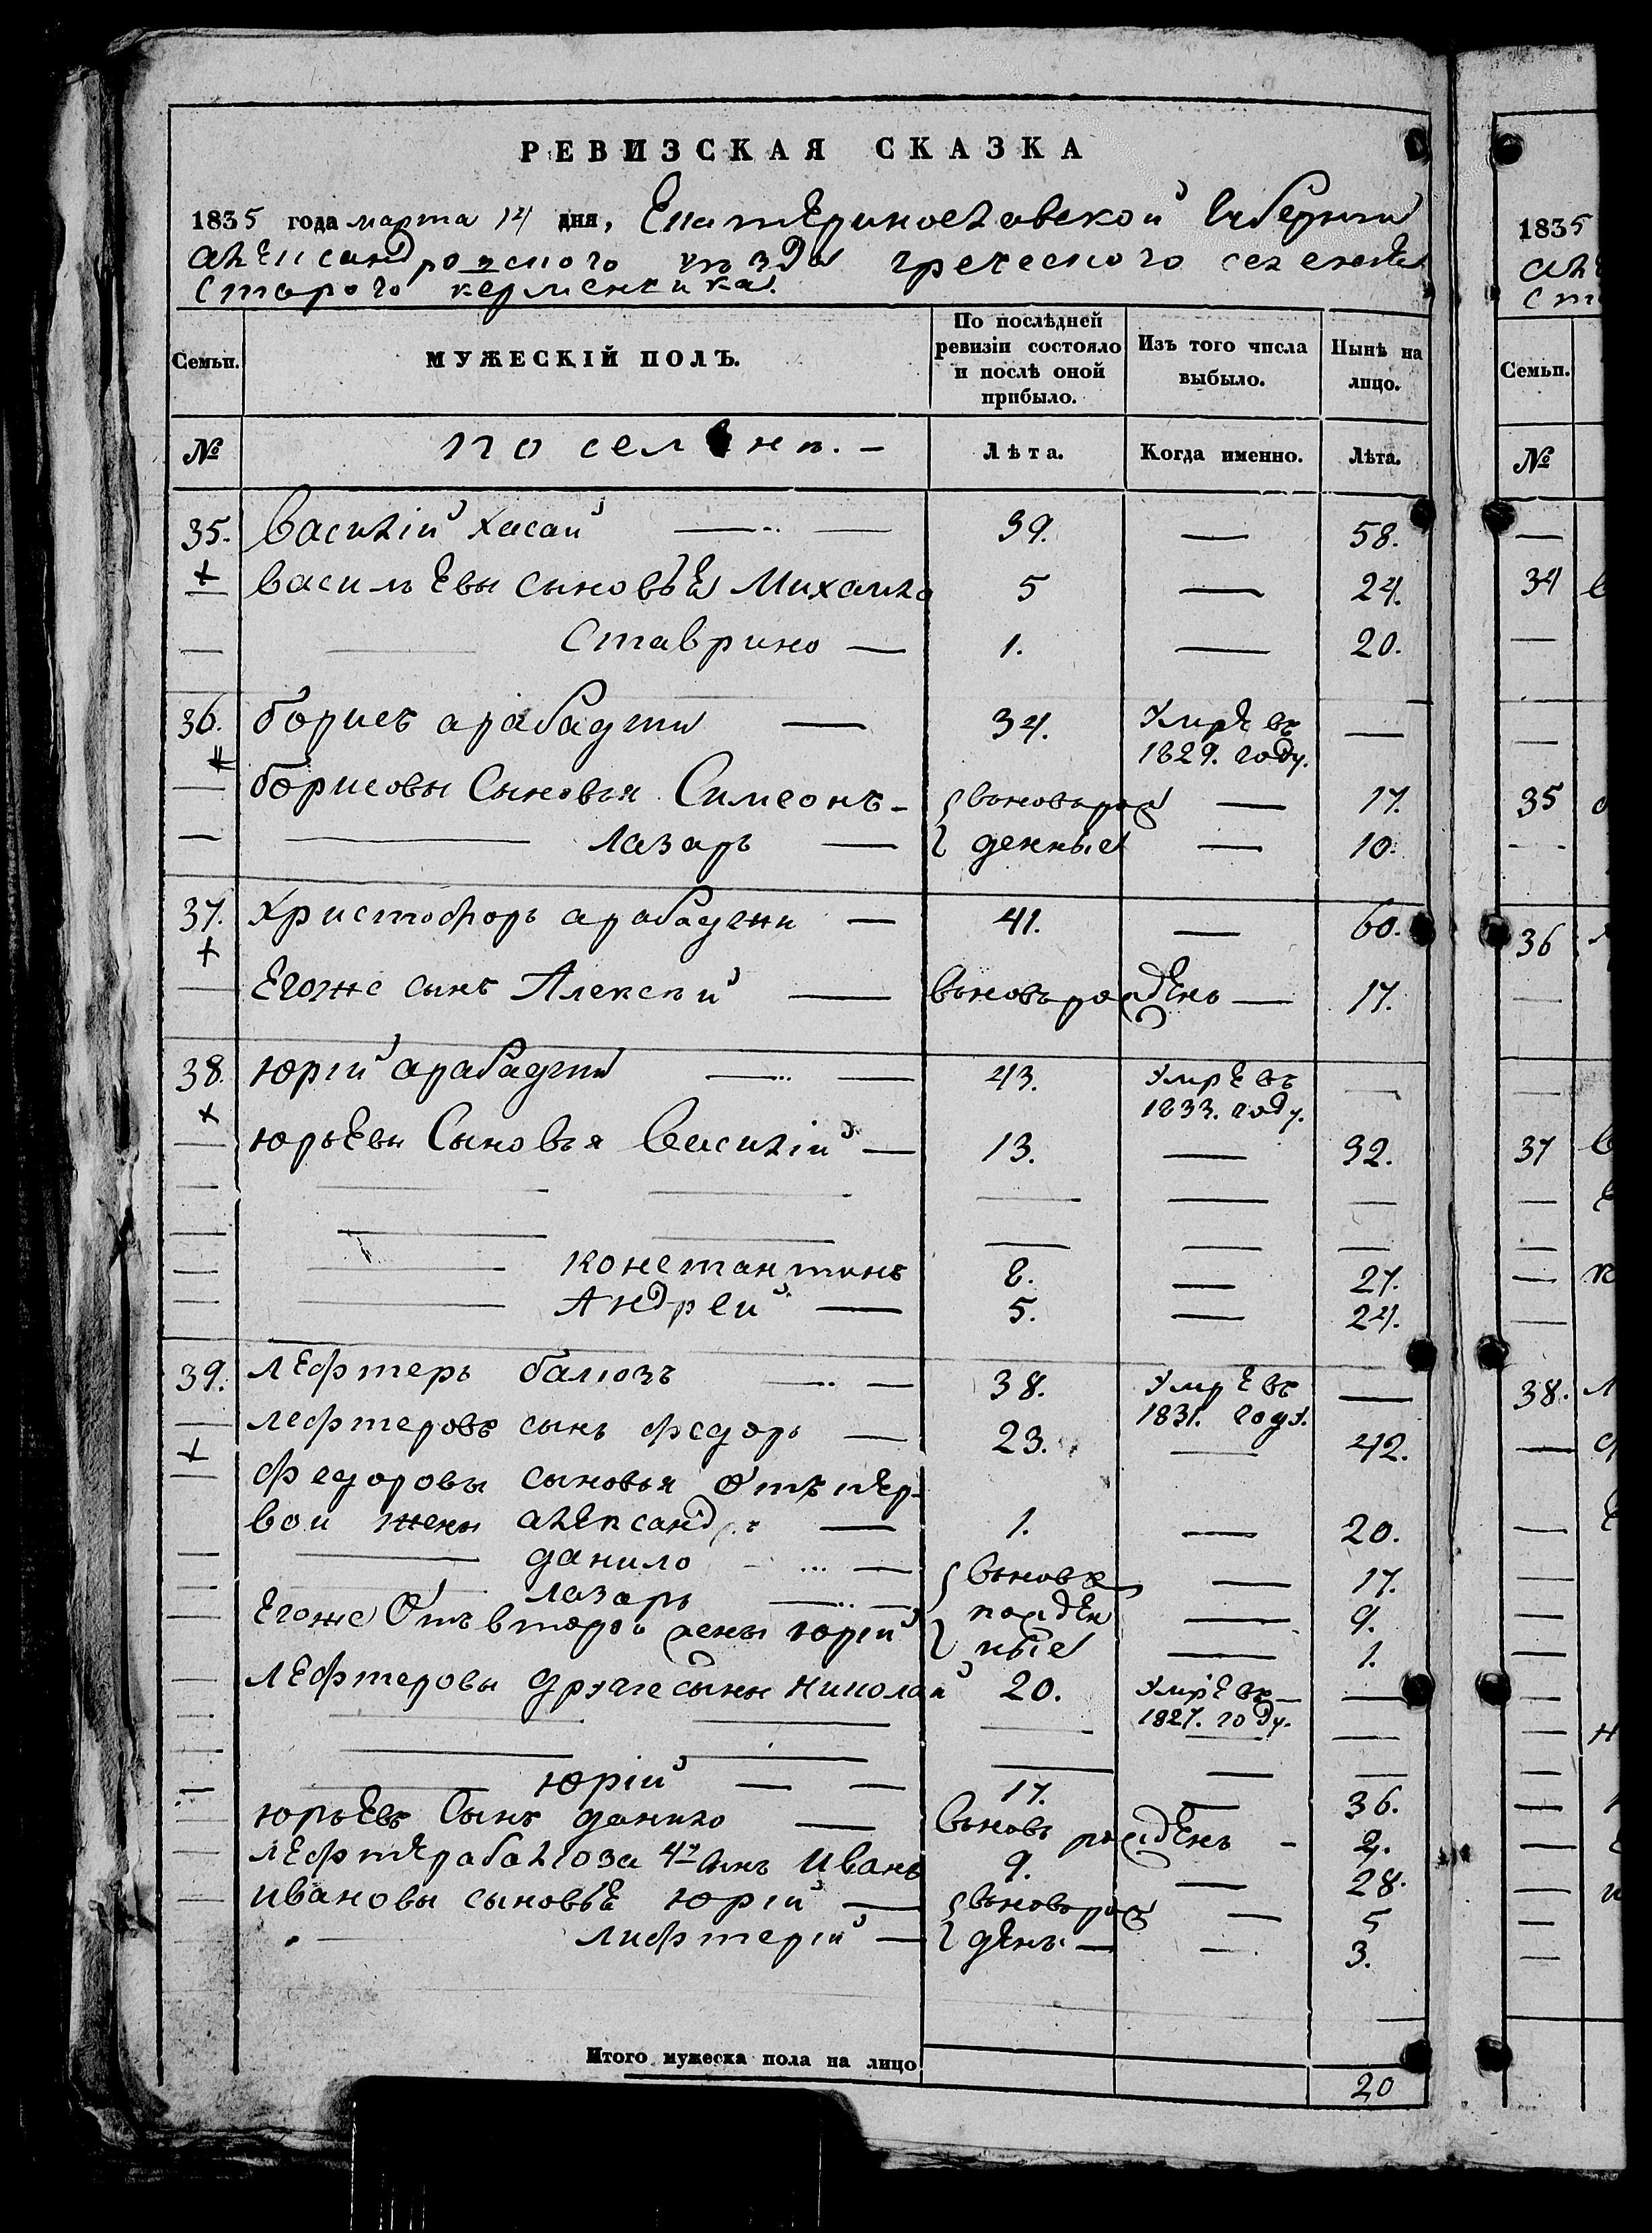 РЕВИЗСКАЯ СКАЗКА
1835 года марта 14 дня, Екатеринославской Губернии
Александровского уѣзда греческого селения
Старого керменчика.
Семьи. МУЖЕСКІЙ ПОЛЪ. По послѣдней ревизіи состояло и послѣ оной прибыло. Изъ того числа выбыло. Нынѣ на лицо.
№ поселян. – Лѣта. Когда именно. Лѣта.
35. Василій Хасай — 39. — 58.
Васильевы сыновья Михаила 5 — 24.
Ставрино — 1. — 20.
36. Борисъ арабаджи — 34. Умре въ 1829. году. —
Борисовы Сыновья Симеонъ – вьноворож — 17.
Лазарь — денные — 10.
37. Христофоръ арабаджи — 41. — 60.
Егоже сынъ Алексѣй — вьноворожденъ — 17.
38. Юрій арабаджи — 43. Умре въ 1833. году. —
Юрьевы Сыновья Василій — 13. — 32.
Константинъ 8. — 27.
Андрей — 5. — 24.
39. Лефтеръ балюзъ — 38. Умре въ 1831. году. —
Лефтеровъ сынъ Федоръ — 23. — 42.
Федоровы сыновья Отъ пер-
вой жены александръ — 1. — 20.
данило — вьновь — 17.
Лазарь — рожден — 9.
Егоже Отъ второй жены Юрій ные — 1.
Лефтеровы другіе сыны Николай 20. Умре въ 1827. году. —
Юрій — 17. — 36.
Юрьевъ Сынъ данило — вьновь рожденъ – 2.
Лефтера балюза 4й сынъ Иванъ 9. — 28.
Ивановы сыновьѣ Юрій — вьноворож — 5
Лифтерій — денъ — 3.
Итого мужеска пола на лицо 20
1835
Семьи.
№
34
35
36
37
38.